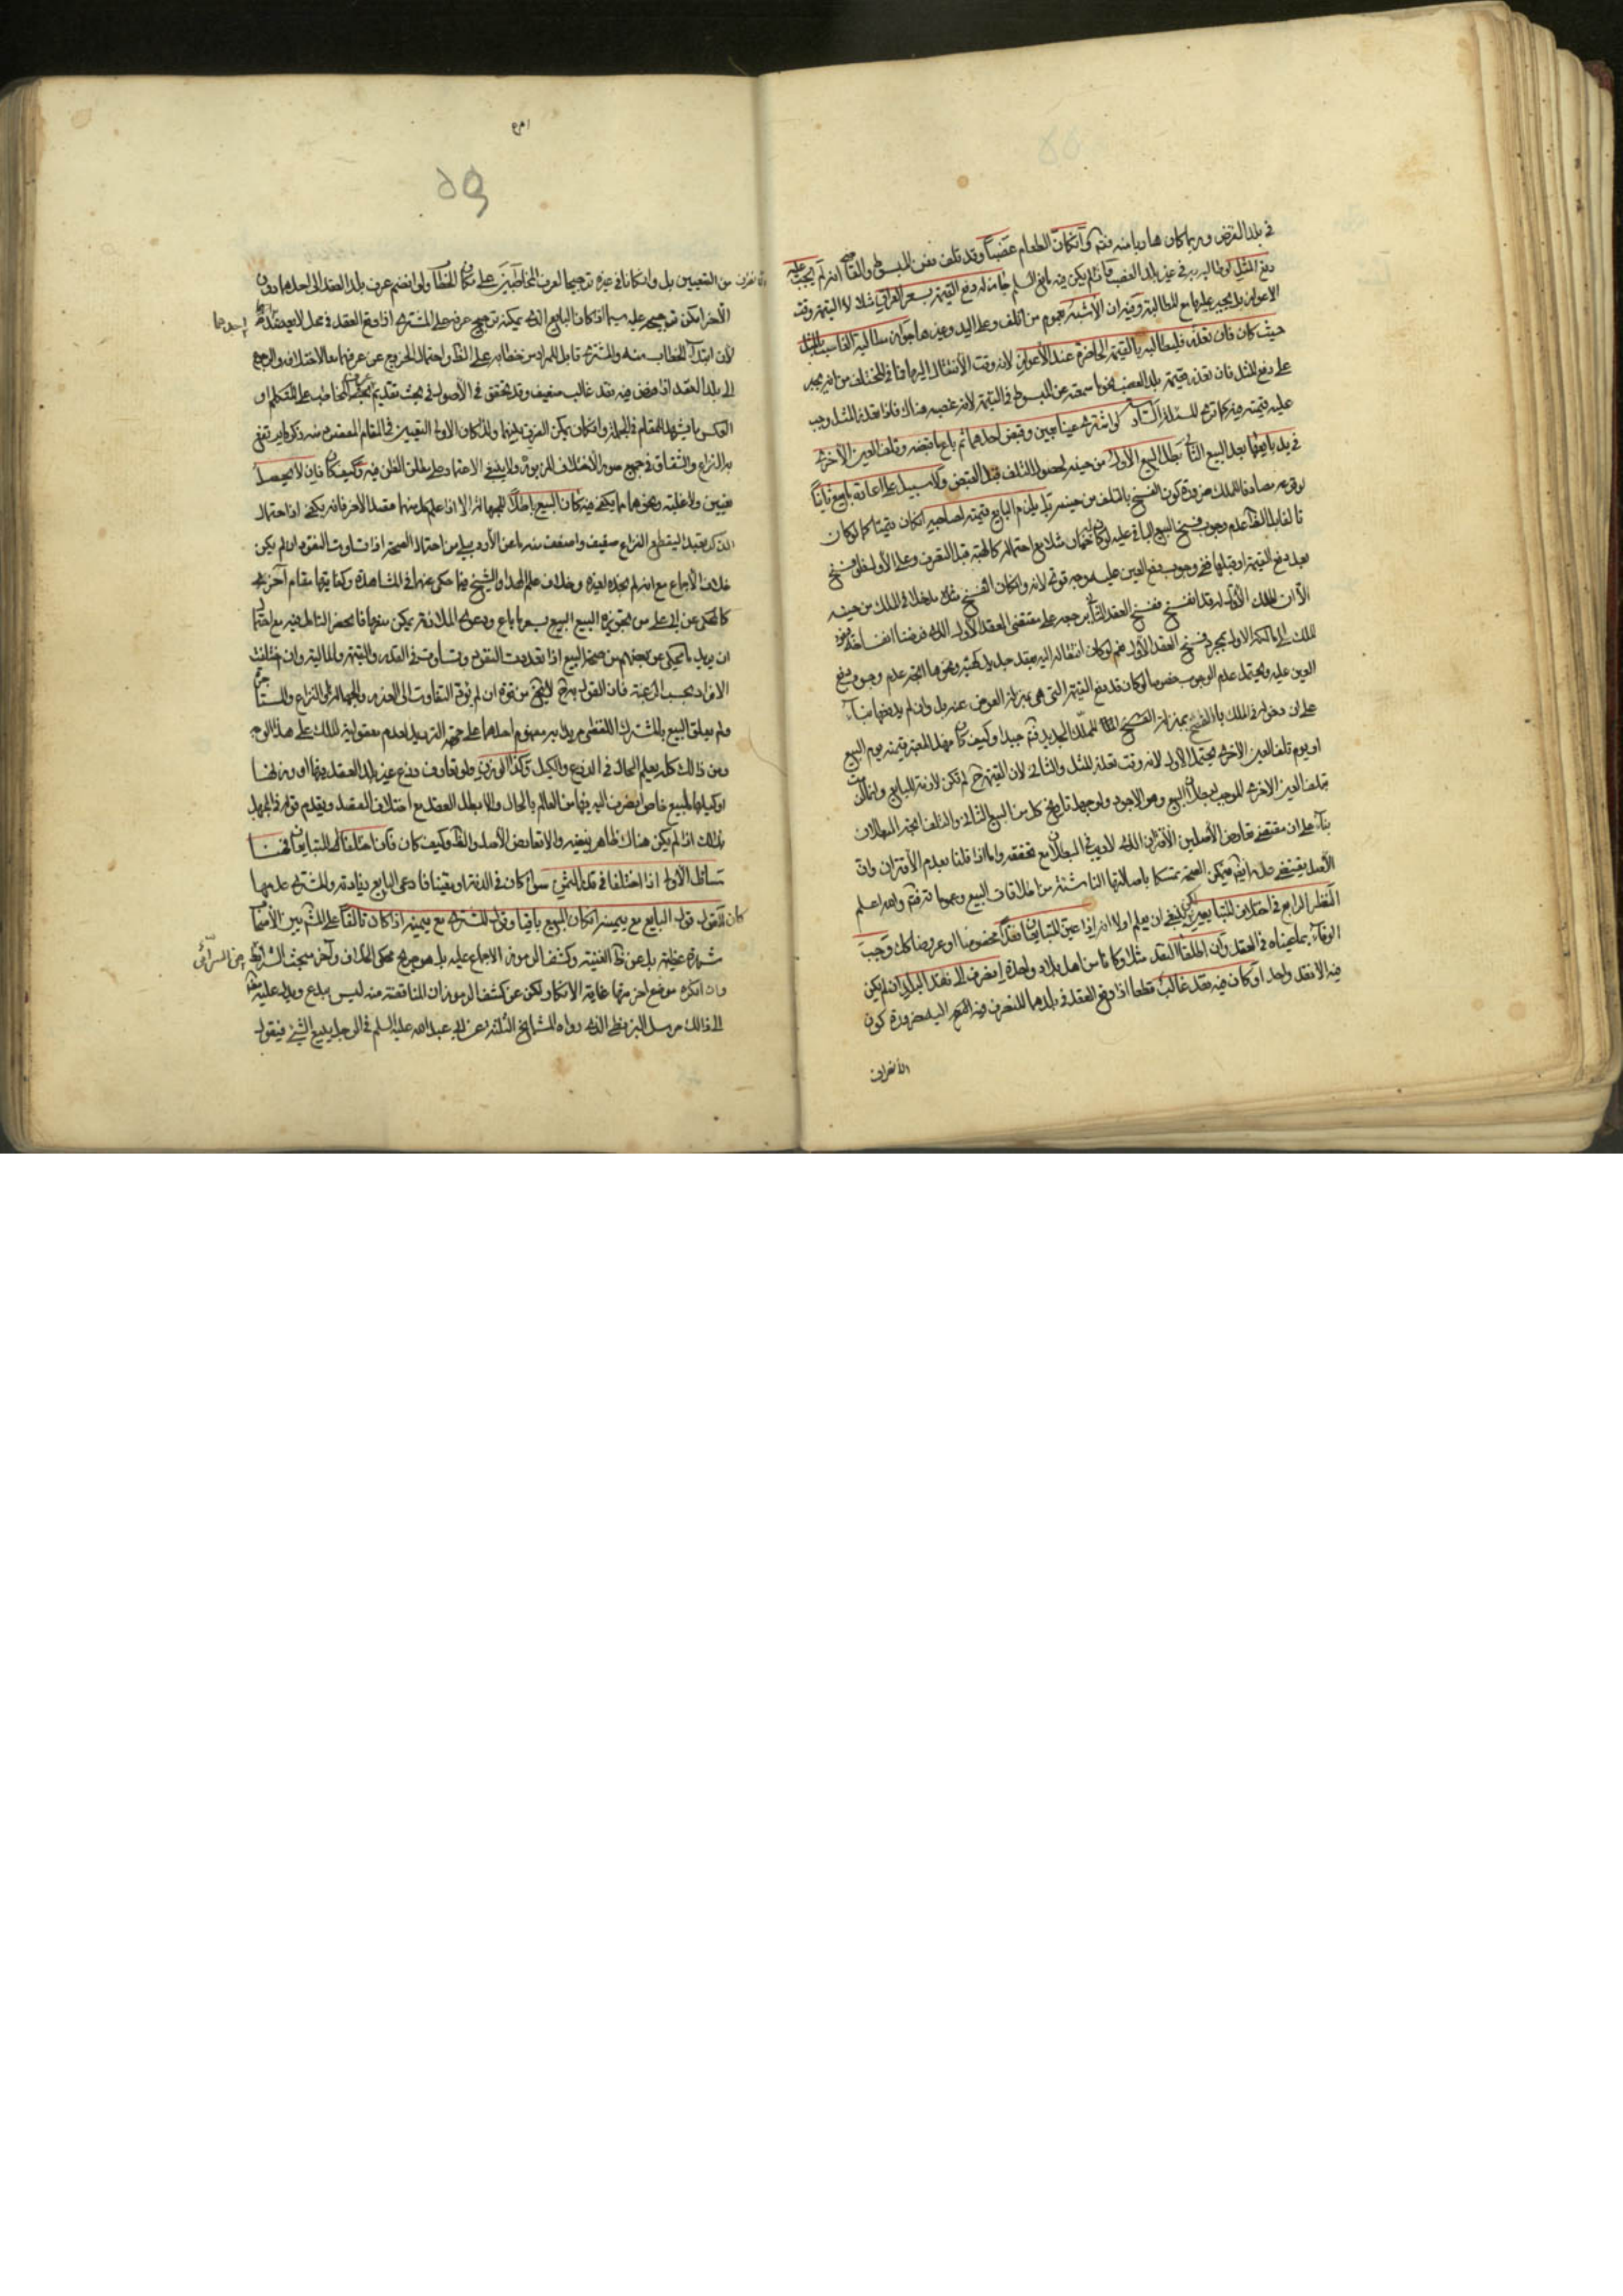 في بلد القرض وربما كان هاربا منه فتم ولو كان الطعام غصبا وقد تلف فعن المبسوط والقاضي انه لم يجب عليه
دفع المثل لو طالبه به في غير بلد الغصب فان لم يكن فيه مانع جاز له دفع القيمة بسعر العراق مثلا لا القيمة وقت
الاعواز بل يجبر عليها مع المطالبة وفيه ان الاشبه بعموم من اتلف وعلى اليد وغيرهما جواز مطالبة الغاصب بالمثل
حيث كان فان تعذر فليطالبه بالقيمة الحاضرة عند الاعواز لانه وقت الانتقال اليها فما في المختلف من انه يجبر
على دفع المثل فان تعذر فقيمة بلد الغصب كما سمعته عن المبسوط في القيمة لانه غصبه هناك فاذا تعذر المثل وجب
عليه قيمته فيه كما ترى المسئلة السادسة لو اشترى عينا بعين وقبض احدهما ثم باع ما قبضه وتلف العين الاخرى
في يد بايعها بعد البيع الثاني بطل البيع الاول من حينه لحصول التلف قبل القبض ولا سبيل على اعادة ما بيع ثانيا
لوقوعه مصادفا للملك ضرورة كون الفسخ بالتلف من حينه بل يلزم البايع قيمته لصاحبه ان كان قيميا كما لو كان
تالفا بل الظاهر عدم وجوب فسخ البيع الباقي عليه لو كان فيه خيار مثلا مع احتماله كالهبة قبل التصرف وعلى الاول فلو فسخ
بعد دفع القيمة او قبلها ففي وجوب دفع العين عليه وجه قوي لانه وان كان الفسخ مثلا مدخلا في الملك من حينه
الا ان الملك الاول له قد انفسخ ففسخ العقد الثاني يرجعه على مقتضى العقد الاول الذي فرضنا انفساخه فيعود
الملك الى مالكه الاول بمجرد فسخ العقد الاول نعم لو كان انتقاله اليه بعقد جديد كهبة ونحوها اتجه عدم وجوب دفع
العين عليه ويحتمل عدم الوجوب خصوصا لو كان قد دفع القيمة التي هي بمنزلة العوض عنه بل وان لم يدفعها بناء
على ان دخوله في الملك بالفسخ بمنزلة الملك الجديد فتم جيدا وكيف كان فهل المعتبر قيمته يوم البيع
او يوم تلف العين الاخرى يحتمل الاول لانه وقت تعذر المثل والثاني لان القيمة ح لم تكن لازمة للبايع وانما لزمت
بتلف العين الاخرى الموجب لبطلان البيع وهو الاجود ولو جهل تاريخ كل من البيع الثاني والتلف اتجه البطلان
بناء على ان مقتضى تعارض الاصلين الاقتران الذي لا ريب في البطلان مع تحققه واما اذا قلنا بعدم الاقتران وان
الاصل يقتضي فيمكن الصحة تمسكا باصالتها الناشئة من اطلاقات البيع وعمومها فتم والله اعلم
النظر الرابع في اختلاف المتبايعين لكن ينبغي ان يعلم اولا انه اذا عين المتبايعان نقدا مخصوصا او عروضا كك وجب
الوفاء بما عيناه في العقد وان اطلقا النقد مثلا وكانا من اهل بلاد واحدة انصرف الى نقد البلد ان لم يكن
فيه الا نقد واحد او كان فيه نقد غالب قطعا اذا وقع العقد في بلدهما للتعارف فيه المتجه اليه ضرورة كون
الانصراف
٥٩
الانصراف من التعيين بل وان كانا في غيره ترجيحا لعرف المخاطبين على مكان الخطاب ولو انضم عرف بلد العقد الى احدهما دون
الاخر امكن ترجيحه عليه سيما اذا كان البايع الذي يمكن ترجيح عرفه على المشتري اذا وقع العقد في محل لا يعد بلد
احدهما
لان ابتداء الخطاب منه والمشتري قابل للمراد من خطابه على الظاهر واحتمال الخروج عن عرفهما معا لاختلافه والرجوع
الى بلد العقد اذا فرض فيه نقد غالب ضعيف وقد تحقق في الاصول في بحث تقديم عرف المخاطب على المتكلم او
العكس ما يشهد للمقام في الجملة وان كان يمكن الفرق بينها ولذا كان الاولى التعيين في المقام المقصود منه ذكر ما يرتفع
به النزاع والشقاق في جميع صور الاختلاف المزبورة ولا ينبغي الاعتماد على مطلق الظن فيه وكيف كان فان لا يحصل
تعيين ولا غلبة ونحوهما مما يكتفى فيه كان البيع باطلا للجهالة الا اذا علم كل منهما مقصد الاخر فانه يكفى اذ احتمال
الذكر تعبدا ليقطع النزاع ضعيف واضعف منه ما عن الاردبيلي من احتمال الصحة اذا تساوت النقود ان لم يكن
خلاف الاجماع مع انه لم نجده لغيره وخلاف علم الهدى والشيخ فيما حكي عنهما في المشاهدة وكفايتها مقام آخر
كالمحكي عن ابي علي من تجويزه البيع بسعر ما باع ودعوى الملازمة يمكن منعها فانحصر الخلاف فيه مع احتمال
ان يريد ما حكي عن بعضهم من صحة البيع اذا تعددت النقود وتساوت في القدر والقيمة والمالية وان اختلفت
الافراد بحسب الرغبة فان القول به ح لا يخلو من قوة ان لم يؤد التفاوت الى الغرر والجهالة والنزاع والتشاجر
ولم يعلق البيع بالمشترك اللفظي مريدا به مفهوم احدهما على جهة الترديد لعدم معقولية الملك على هذا الوجه
ومن ذالك كله يعلم الحال في الذرع والكيل وكذا الوزن ولو تعارف ذرع غير بلد العقد فيها او وزنها
او كيلها لمبيع خاص انصرف اليه فيها من العالم بالحال والا بطل العقد مع اختلاف المقصد ويقدم قوله في الجهل
بذلك اذا لم يكن هناك ظاهر ينفيه والا تعارض الاصل والظاهر وكيف كان فان اختلفا المتبايعان فهنا
مسائل الاولى اذا اختلفا في قدر الثمن سواء كان في الذمة او معينا فادعى البايع زيادته والمشتري عدمها
كان القول قول البايع مع يمينه ان كان المبيع باقيا وقول المشتري مع يمينه اذا كان تالفا على المشهور بين الاصحاب
شهرة عظيمة بل عن ظاهر الغنية وكشف الرموز الاجماع عليه بل هو صريح محكي الخلاف وآخر مبحث الشرائط من السرائر
وان انكره موضع اخر منها غاية الانكار ولكن عن كشف الرموز ان المناقضة منه ليس ببدع ويدل عليه مضافا
الى ذالك مرسل البزنطي الذي رواه المشايخ الثلثة عن ابي عبد الله عليه السلم في الرجل يبيع الشئ فيقول